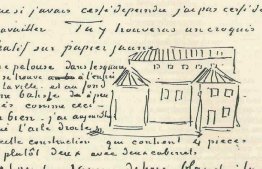 si j'avais cessé de peindre j'ai pas cessé de
travailler Tu y trouveras un croquis
hatif sur papier jaune
une pelouse dans le square
se trouve à l'entrée
la ville. et au fond
une batisse de à peu
près comme ceci -
bien. j'ai aujourd'hui
l'aile droite de
cette construction qui contient 4 pièces
plutôt deux avec deux cabinets